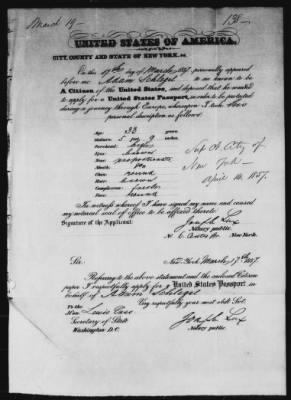 March 19 —
UNITED STATES OF AMERICA.
CITY, COUNTY AND STATE OF NEW YORK, ss.
On this 17th day of March 1857, personally appeared
before me Adam Schlegel to me known to be
A Citizen of the United States, and deposed that he wanted
to apply for a United States Passport, in order to be protected
during a journey through Europe, whereupon I took
personal description as follows:
Age: 33 years
Stature: 5 ft. 9 inches
Forehead: high
Eyes: brown
Nose: proportionate
Mouth:
Chin: round
Hair: brown
Complexion:
Face: round
Sup. Ct. City of
New York —
April 10. 1857.
In witness whereof I have signed my name and caused
my notarial seal of office to be affixed thereto.
Signature of the Applicant:
Joseph Lux
Notary public.
New York.
Sir.
New-York, March 17th 1857.
Referring to the above statement and the enclosed Citizen
paper I respectfully apply for a United States Passport in
behalf of Adam Schlegel
Very respectfully your most obt. Svt.
To the
Hon. Lewis Cass
Secretary of State
Washington D.C.
Joseph Lux
Notary public.